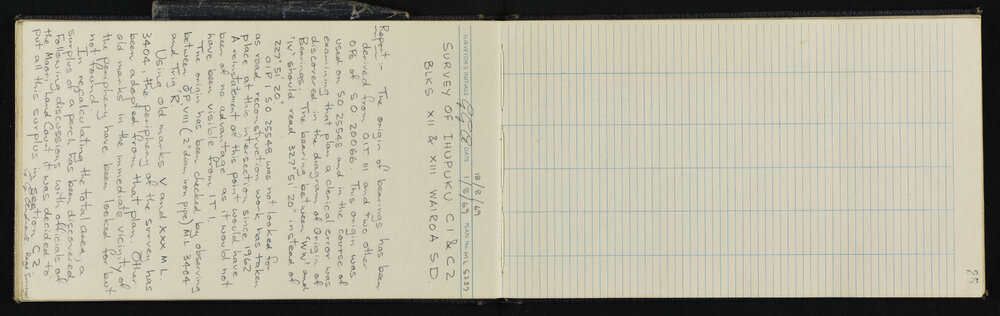 25
18/8/69
SURVEYOR'S INITIALS DATE 1/8/69 PLAN No. ML 5237
SURVEY OF IHUPUKU C1 & C2
BLKS XII & XIII WAIROA S.D.
Report:- The origin of bearings has been
derived from OIT III and two other
OBs of S.O. 20066. This origin was
used on SO 25548 and in the course of
examining that plan a clerical error was
discovered in the diagram of Origin of
Bearings; The bearing between 'W' and
'IV' should read 327° 51' 20" instead of
227° 51' 20"
OIP I SO 25548 was not looked for
as road reconstruction work has taken
place at this intersection since 1962
A reinstatement of this point would have
been of no advantage as it would not
have been visible from IT I.
The origin has been checked by observing
between OP VIII (2" diam iron pipe) ML 3404
and Trig 'R'.
Using old marks V and XXX ML
3404, the periphery of the survey has
been adopted from that plan. Other
old marks in the immediate vicinity of
the periphery have been looked for but
not found.
In recalculating the total area, a
surplus of a perch has been discovered
Following discussions with officials of
the Maori Land Court it was decided to
put all this surplus in Section C2